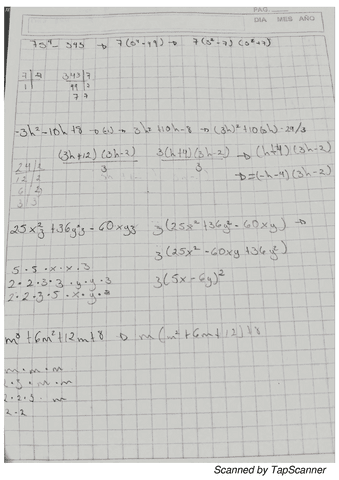 PAG.
DIA MES AÑO
7s⁴ - 343 → 7(s⁴-49) → 7(s²-7)(s²+7)
7 | 7 343 | 7
1 49 | 7
7 7
-3h²-10h+8 → (-1) → 3h²+10h-8 → (3h)²+10(3h)-24/3
(3h+12)(3h-2) 3(h+4)(3h-2) → (h+4)(3h-2)
3 3 → =(-h-4)(3h-2)
24 | 2
12 | 2
6 | 2
3 | 3
25x²z + 36y²z - 60xyz z(25x²+36y²-60xy) →
z(25x²-60xy+36y²)
5·5·x·x·z
2·2·3·3·y·y·z z(5x-6y)²
2·2·3·5·x·y·z
m³+6m²+12m+8 → m(m²+6m+12)+8
m·m·m
2·3·m·m
2·2·3·m
2·2
Scanned by TapScanner